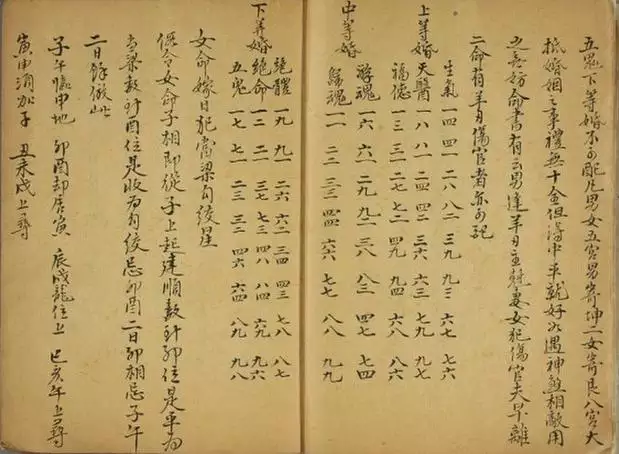 五鬼下等婚不可配凡男女五宮男寄坤二女寄艮八宮大
抵婚姻之事禮無十全但得中平就好如遇神煞相敵用
之無妨命書有云男逢羊刃主尅妻女犯傷官夫早離
二命有羊刃傷官者亦可配
上等婚
生氣 一四 四一 二八 八二 三九 九三 六七 七六
天醫 一八 八一 二四 四二 三六 六三 七九 九七
福德 一三 三一 二七 七二 四九 九四 六八 八六
中等婚
游魂 一六 六一 二九 九二 三八 八三 四七 七四
歸魂 一一 二二 三三 四四 六六 七七 八八 九九
下等婚
絕體 一九 九一 二六 六二 三四 四三 七八 八七
絕命 一二 二一 三七 七三 四八 八四 六九 九六
五鬼 一七 七一 二三 三二 四六 六四 八九 九八
女命嫁日犯當梁勾絞星
假令女命子相即從子上起建順數到卯位是平為
當梁數到酉位是收為勾絞忌卯酉二日卯相忌子午
二日餘倣此
子午臨申地 卯酉却居寅 辰戌龍位上 巳亥午上尋
寅申消加子 丑未戌上尋